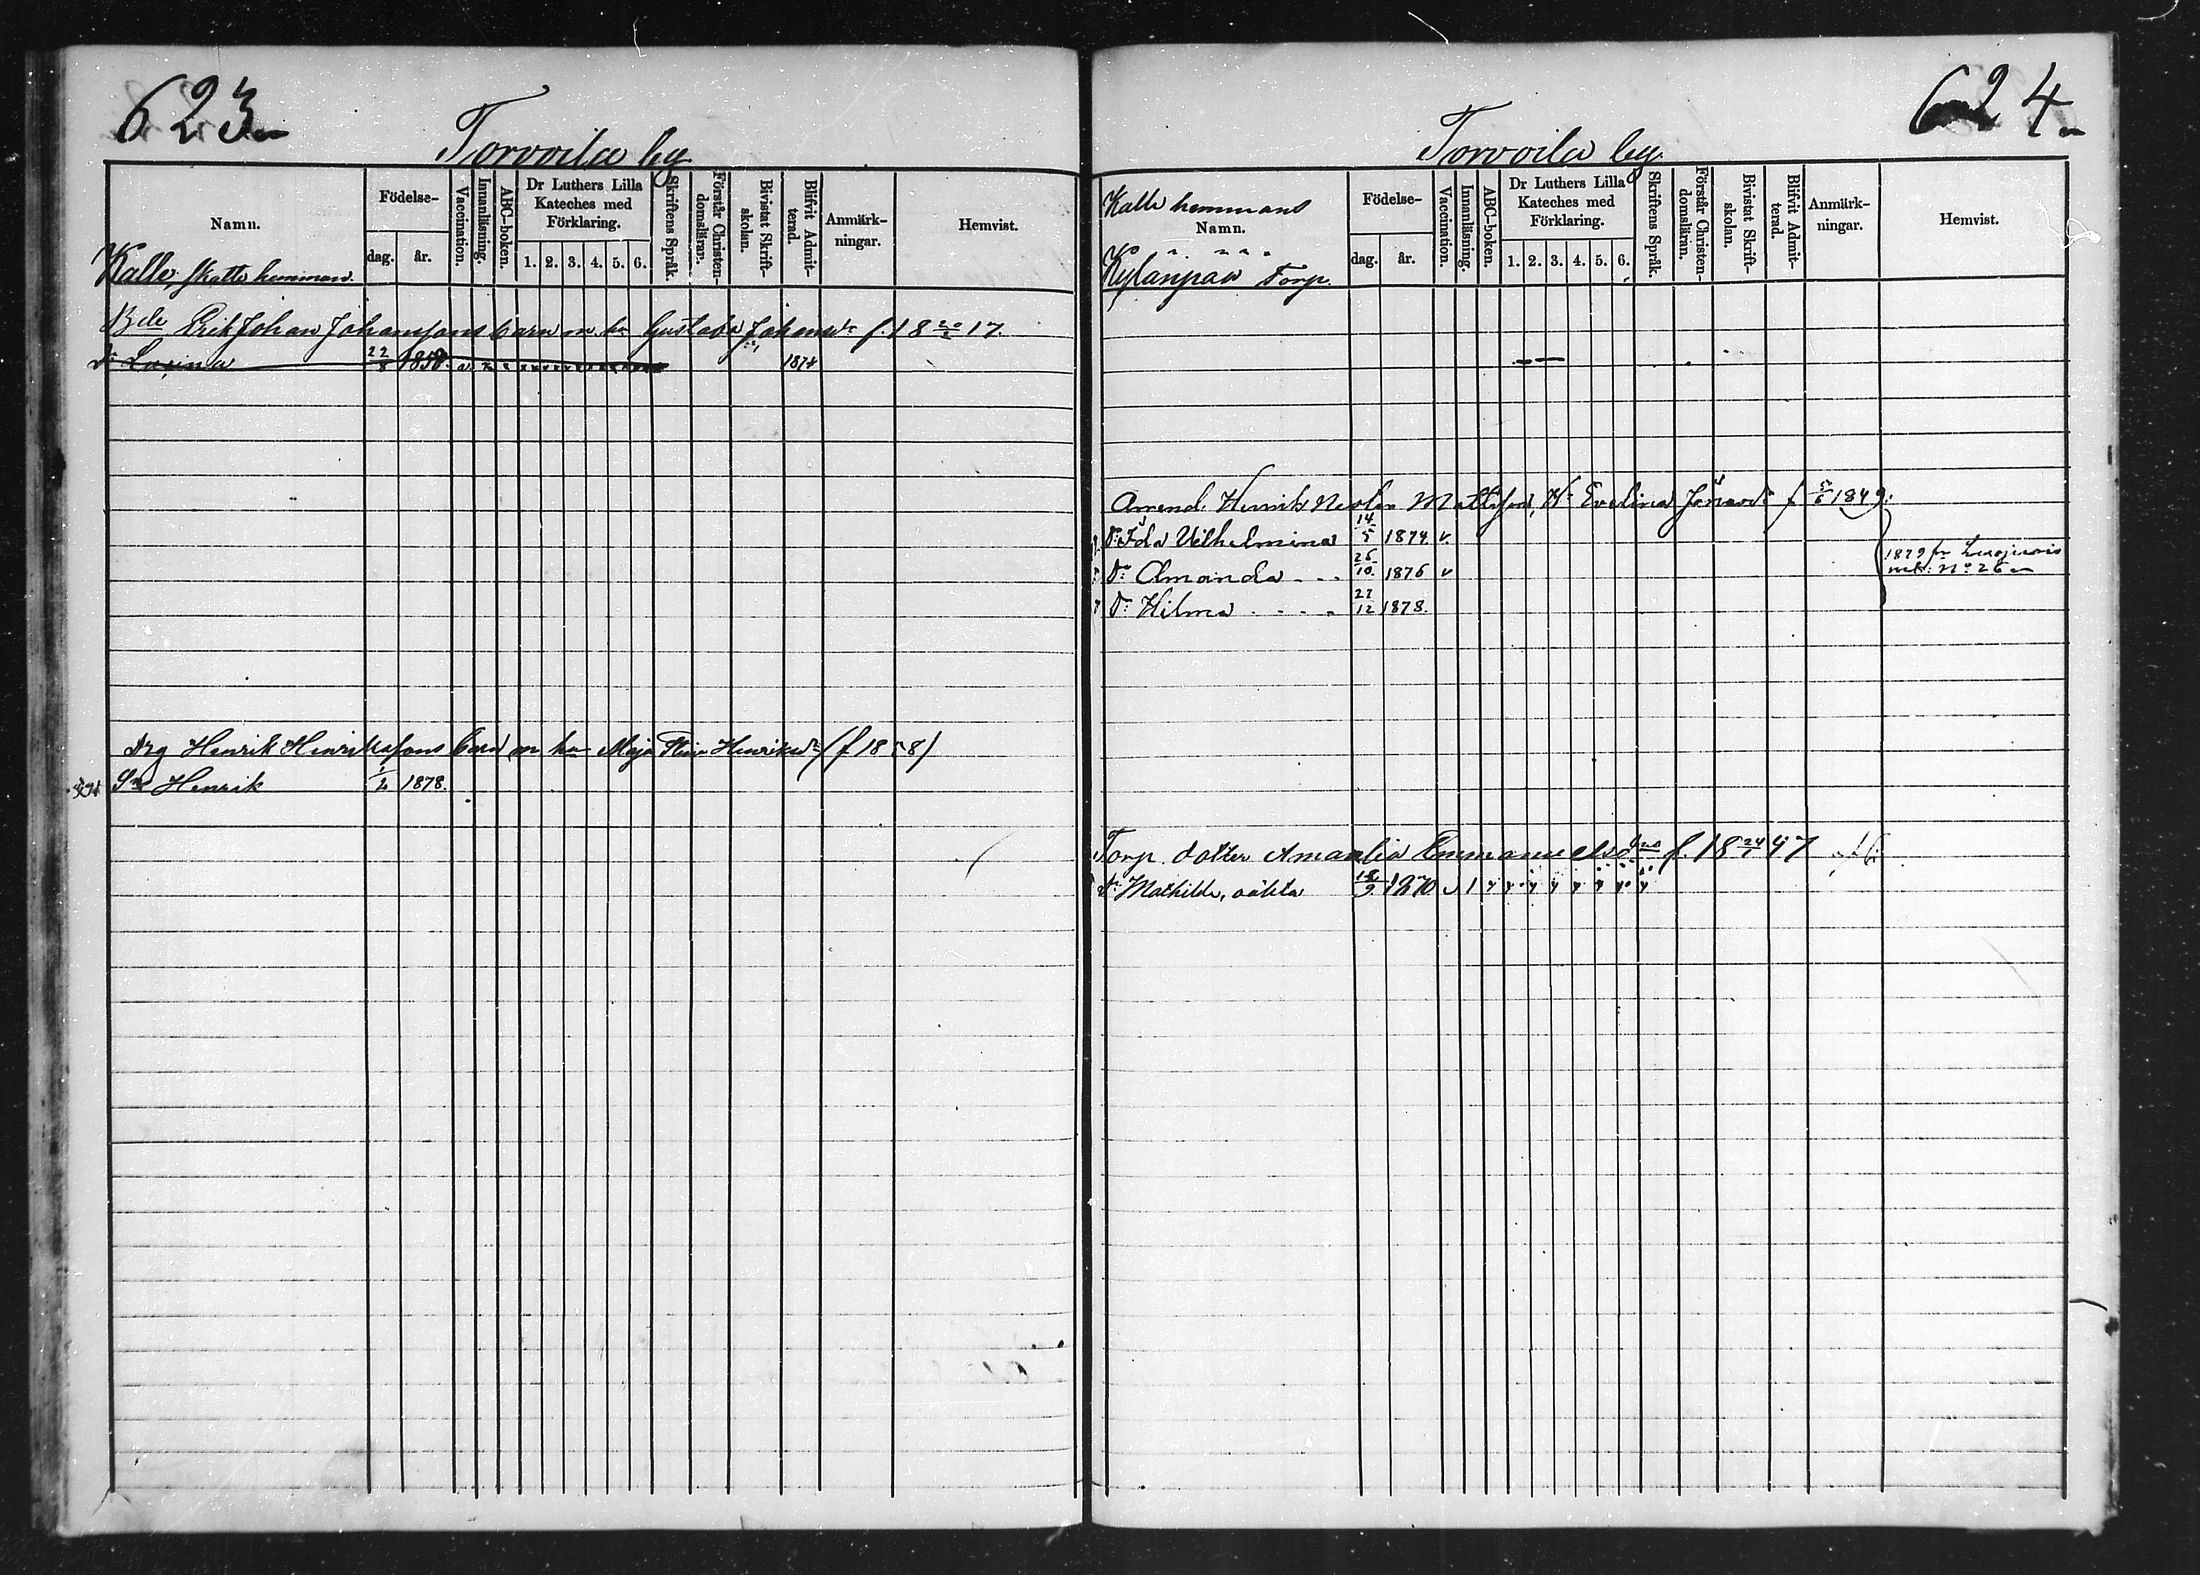 623
Torvoila by
Namn.
Födelse-
dag.
år.
Vaccination.
Innanläsning.
ABC-boken.
Dr Luthers Lilla
Kateches med
Förklaring.
1. 2. 3. 4. 5. 6.
Skriftens Språk.
Förstår Christen-
domsläran.
Bivistat Skrift-
skolan.
Blifvit Admit-
terad.
Anmärk-
ningar.
Hemvist.
Kalle, skatte hemman.
Bde Erik Johan Johanssons barn m. h. Gustava Johansdr f. 18 20/2 17.
Dr 22/8 1858. 1874
Drg Henrik Henrikssons barn m. h. Maja Stina Henriksdr (f 1858)
Sn Henrik 1/2 1878.
624
Torvoila by
Kalle hemmans
Namn.
Kylänpää Torp.
Födelse-
dag.
år.
Vaccination.
Innanläsning.
ABC-boken.
Dr Luthers Lilla
Kateches med
Förklaring.
1. 2. 3. 4. 5. 6.
Skriftens Språk.
Förstår Christen-
domsläran.
Bivistat Skrift-
skolan.
Blifvit Admit-
terad.
Anmärk-
ningar.
Hemvist.
Arrend. Henrik Mattsson, H. Evelina f 5/6 1849.
Dr Ida Vilhelmina 14/5 1874 v.
Dr Amanda 26/10 1876 v
1879 No 26
Dr Hilma 27/12 1878.
Torp. dotter Amanlia Emmanuelsdrs f. 18 24/1 47
Dr Mathilda, oäkta 18/9 1870